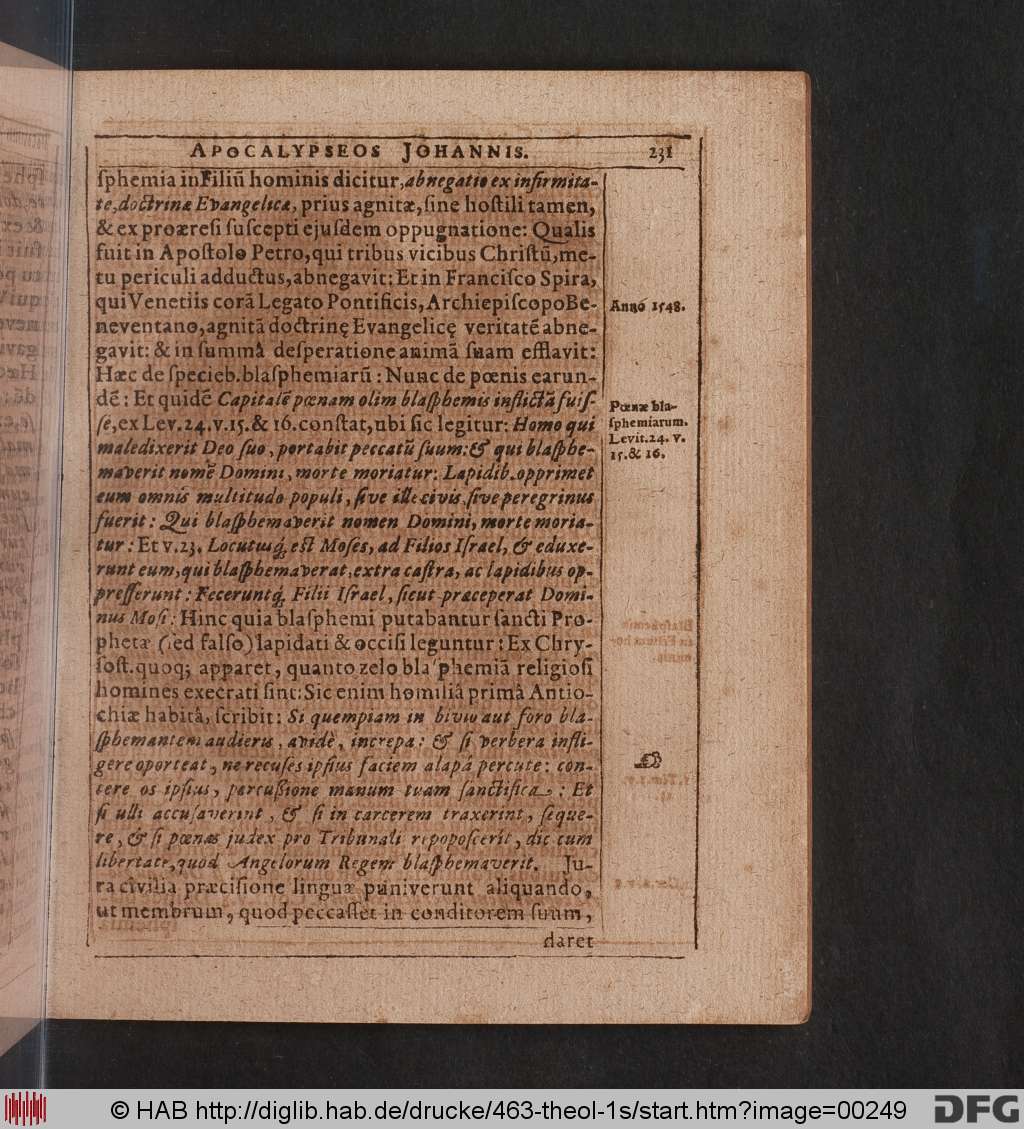 APOCALYPSEOS JOHANNIS. 231
ſphemia in Filiũ hominis dicitur, abnegatio ex infirmita-
te, doctrinæ Evangelicæ, prius agnitæ, ſine hoſtili tamen,
& ex proæreſi ſuſcepti ejuſdem oppugnatione: Qualis
fuit in Apoſtolo Petro, qui tribus vicibus Chriſtũ, me-
tu periculi adductus, abnegavit: Et in Franciſco Spira,
qui Venetiis corã Legato Pontificis, Archiepiſcopo Be-
neventano, agnitã doctrinę Evangelicę veritatẽ abne-
gavit: & in ſummâ deſperatione animã ſuam efflavit:
Hæc de ſpecieb. blaſphemiarũ: Nunc de pœnis earun-
dẽ: Et quidẽ Capitalẽ pœnam olim blaſphemis inflictã fuiſ-
ſe, ex Lev. 24. v. 15. & 16. conſtat, ubi ſic legitur: Homo qui
maledixerit Deo ſuo, portabit peccatũ ſuum: & qui blaſphe-
maverit nomẽ Domini, morte moriatur: Lapidib. opprimet
eum omnis multitudo populi, ſive ille civis, ſive peregrinus
fuerit: Qui blaſphemaverit nomen Domini, morte moria-
tur: Et v. 23. Locutusq́; eſt Moſes, ad Filios Iſrael, & eduxe-
runt eum, qui blaſphemaverat, extra caſtra, ac lapidibus op-
preſſerunt: Feceruntq́; Filii Iſrael, ſicut præceperat Domi-
nus Moſi: Hinc quia blaſphemi putabantur ſancti Pro-
phetæ (ſed falſo) lapidati & occiſi leguntur: Ex Chry-
ſoſt. quoq; apparet, quanto zelo blaſphemiã religioſi
homines execrati ſint: Sic enim homiliâ primâ Antio-
chiæ habitâ, ſcribit: Si quempiam in bivio aut foro bla-
ſphemantem audieris, avidè, increpa: & ſi verbera infli-
gere oporteat, ne recuſes ipſius faciem alapâ percute: con-
tere os ipſius, percuſſione manum tuam ſanctifica: Et
ſi ulli accuſaverint, & ſi in carcerem traxerint, ſeque-
re, & ſi pœnas judex pro Tribunali repopoſcerit, dic cum
libertate, quod Angelorum Regem blaſphemaverit. Ju-
ra civilia præciſione linguæ puniverunt aliquando,
ut membrum, quod peccaſſet in conditorem ſuum,
daret
Anno 1548.
Pœnæ bla-
ſphemiarum.
Levit. 24. v.
15. & 16.
© HAB http://diglib.hab.de/drucke/463-theol-1s/start.htm?image=00249
DFG